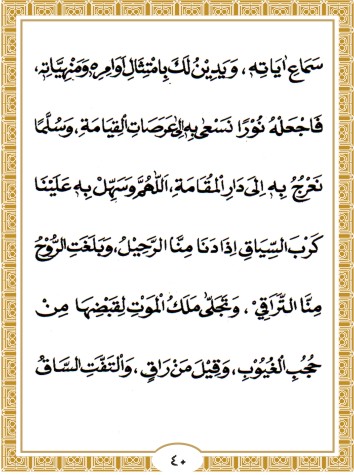 سَمَاعِ اٰيَاتِهٖ، وَيَدِيْنُ لَكَ بِامْتِثَالِ اَوَامِرِهٖ وَمَنْهِيَّاتِهٖ،
فَاجْعَلْهُ نُوْرًا نَسْعٰى بِهٖ اِلٰى عَرَصَاتِ الْقِيَامَةِ، وَسُلَّمًا
نَعْرُجُ بِهٖ اِلٰى دَارِ الْمُقَامَةِ، اَللّٰهُمَّ وَسَهِّلْ بِهٖ عَلَيْنَا
كَرْبَ السِّيَاقِ اِذَا دَنَا مِنَّا الرَّحِيْلُ، وَبَلَغَتِ الرُّوْحُ
مِنَّا التَّرَاقِيْ، وَتَجَلّٰى مَلَكُ الْمَوْتِ لِقَبْضِهَا مِنْ
حُجُبِ الْغُيُوْبِ، وَقِيْلَ مَنْ رَاقٍ، وَالْتَفَّتِ السَّاقُ
٤٠